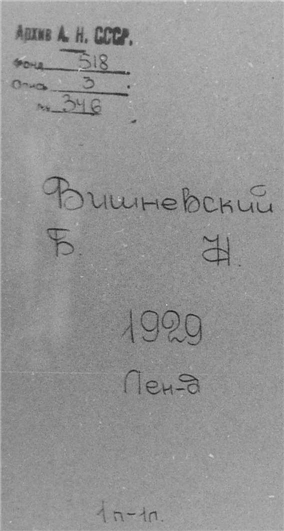 Архив А. Н. СССР.
Фонд 518
Опись 3
№ 346
Вишневский
Б. Н.
1929
Лен-д
1п-1л.